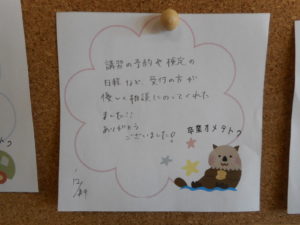 講習の予約や検定の
日程など、受付の方が
優しく相談にのってくれた
ました!!
ありがとう
ございました!
卒業オメデトウ
'12/